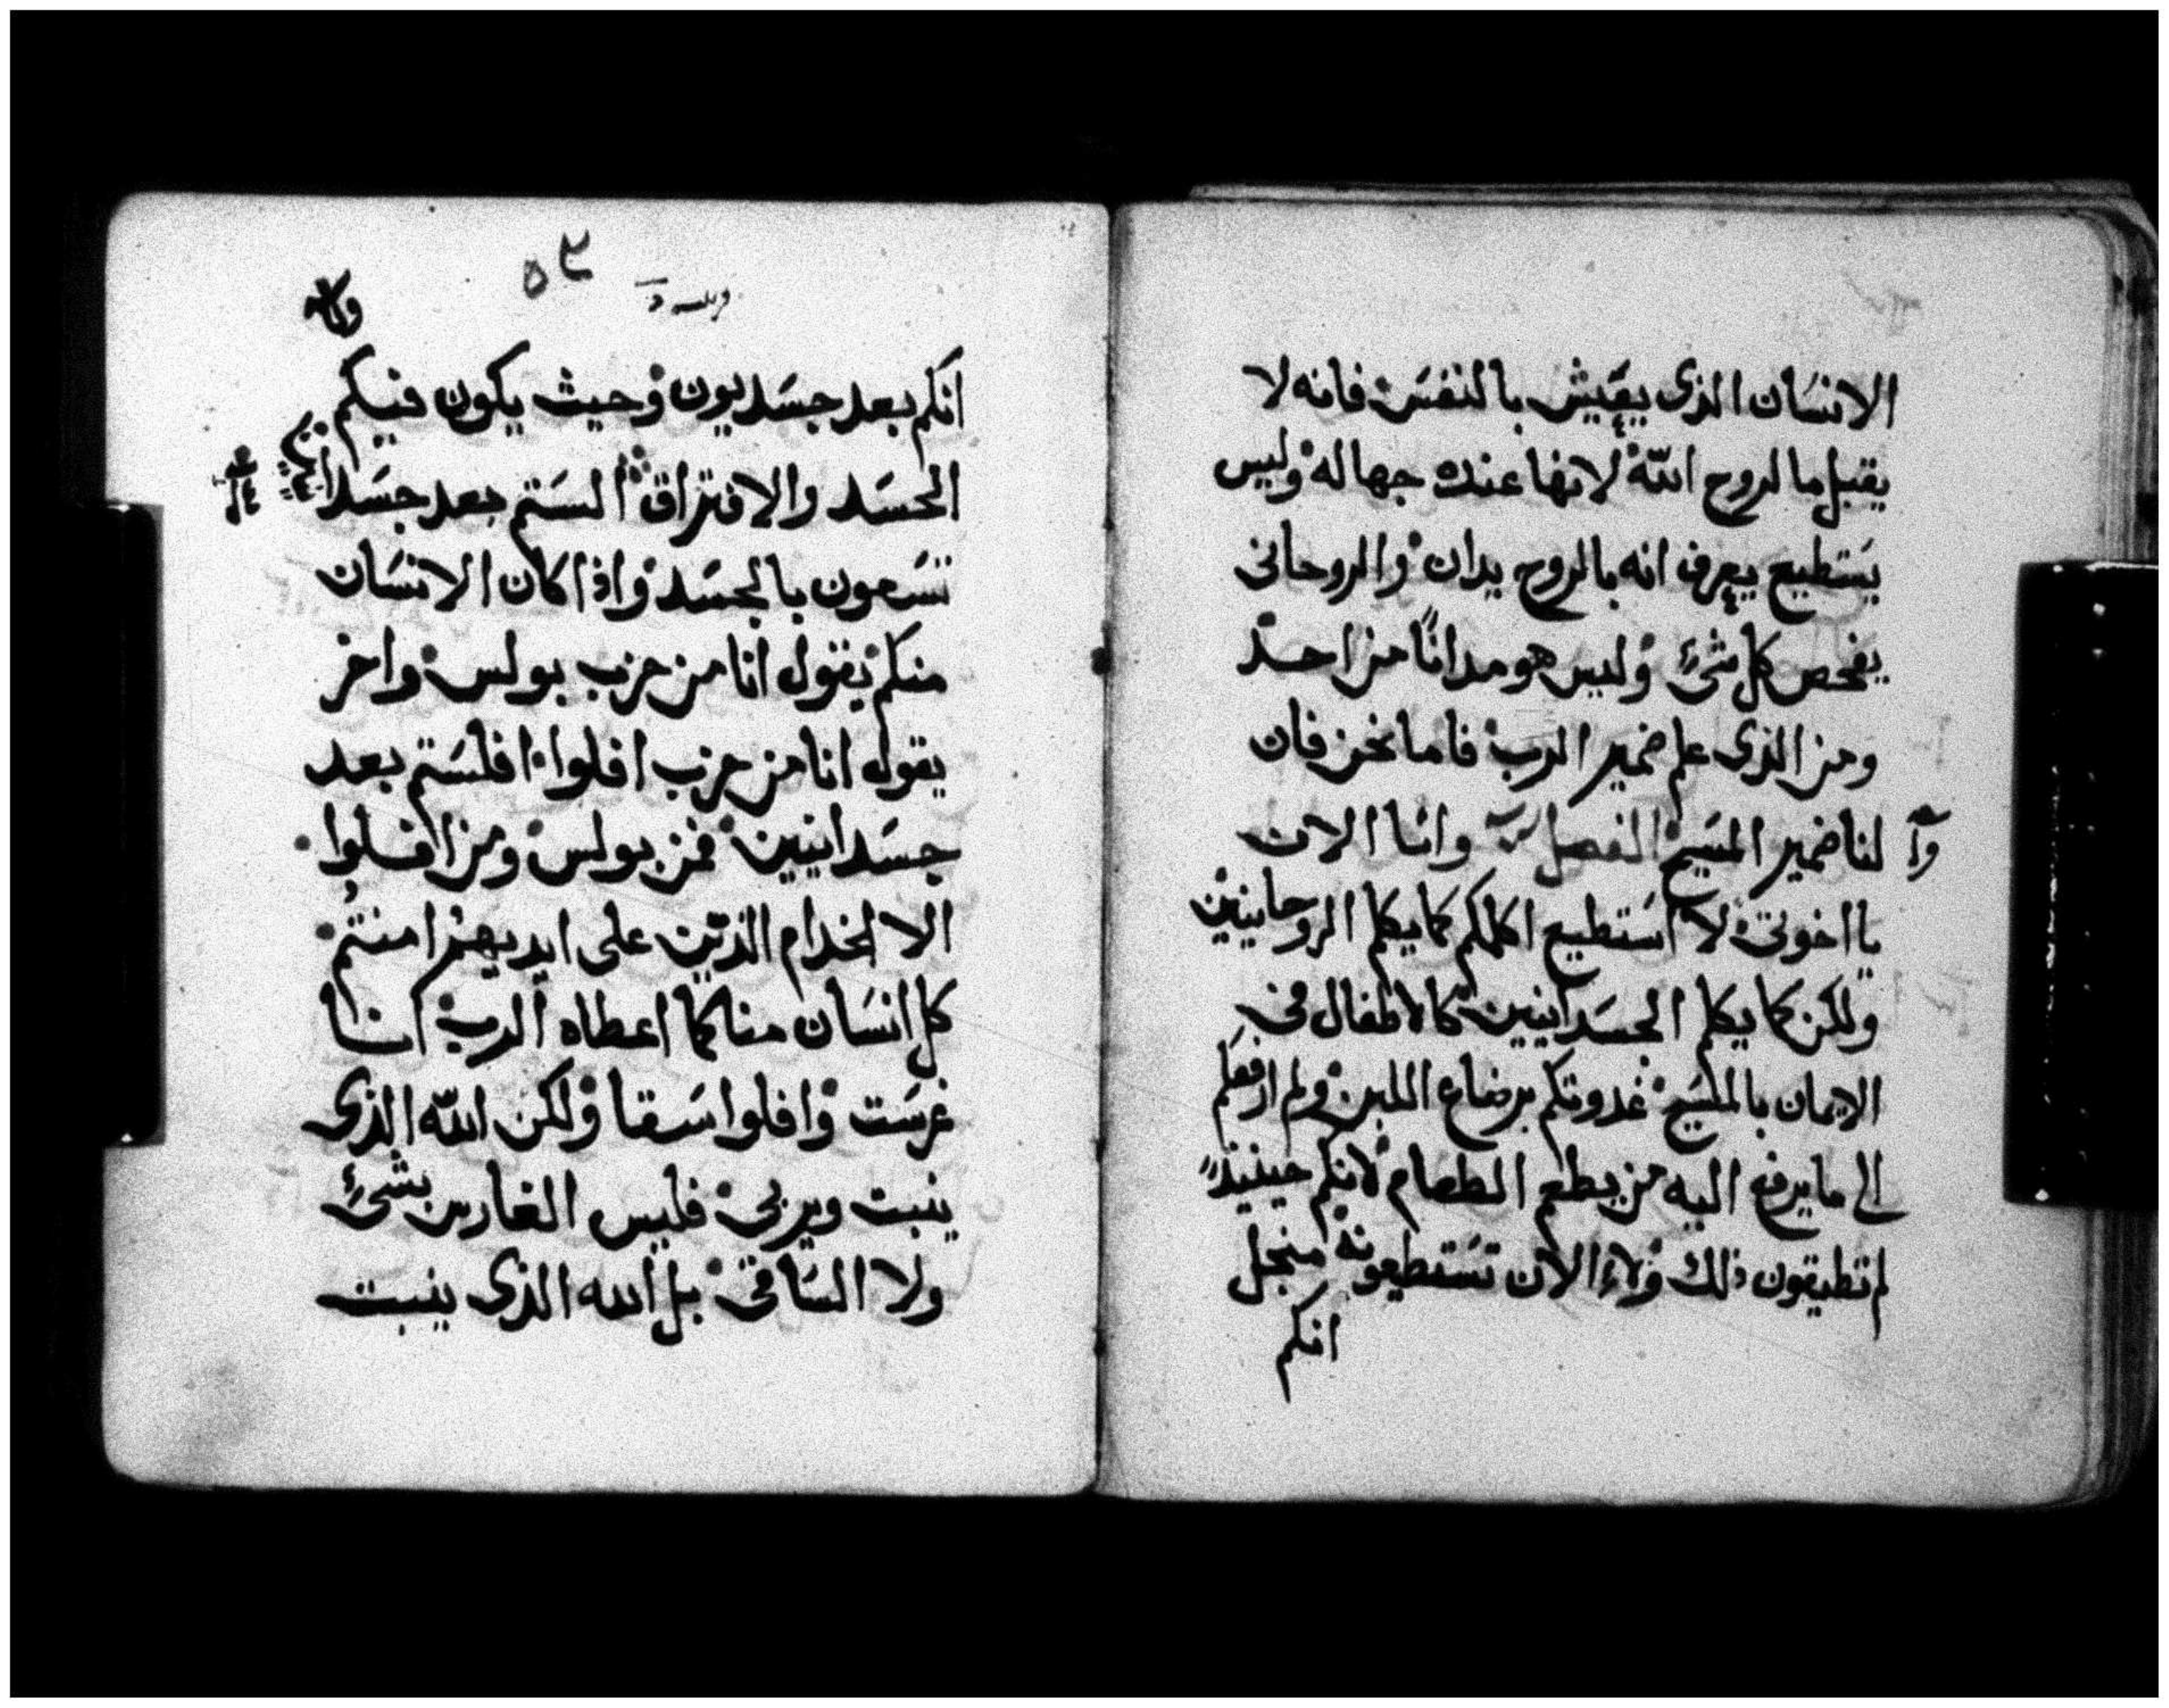 الانسَان الذى يعَيش بالنفسَ فانه لا
يقبل مالروح اللّه لانها عنده جهاله وليس
يسَتطيع يعرف انه بالروح يدان والروحانى
يفحص كل شىء وليس هو مدانًا من احد
ومن الذى علم ضمير الرب فاما نحن فان
لنا ضمير المسَيح الفصل وانا الان
يا اخوتى لا اسَتطيع اكلمكم كما يكلم الروحانيين
ولكن كما يكلم الجسَدانيين كالاطفال فى
الايمان بالمسَيح غدوتكم برضاع اللبن ولم ارفعكم
الى ما يرفع اليه من يطعم الطعام لانكم حينيذً
لم تطيقون ذلك ولا الان تسَتطيعونه منجل
انكم
٥٣
انكم بعد جسَديون وحيث يكون فيكم
الحسَد والافتراق السَتم بعد جسَدا
تسَعون بالجسَد واذا كان الانسَان
منكم يقول انا من حزب بولس واخر
يقول انا من حزب افلوا افلسَتم بعد
جسَدانيين فمن بولس ومن افلوا
الا الخدام الذين على ايديهم امنتم
كل انسَان منا كما اعطاه الرب انا
غرسَت وافلوا سَقا ولكن اللّه الذى
ينبت ويربى فليس الغارس بشىء
ولا السَاقى بل الله الذى ينبت